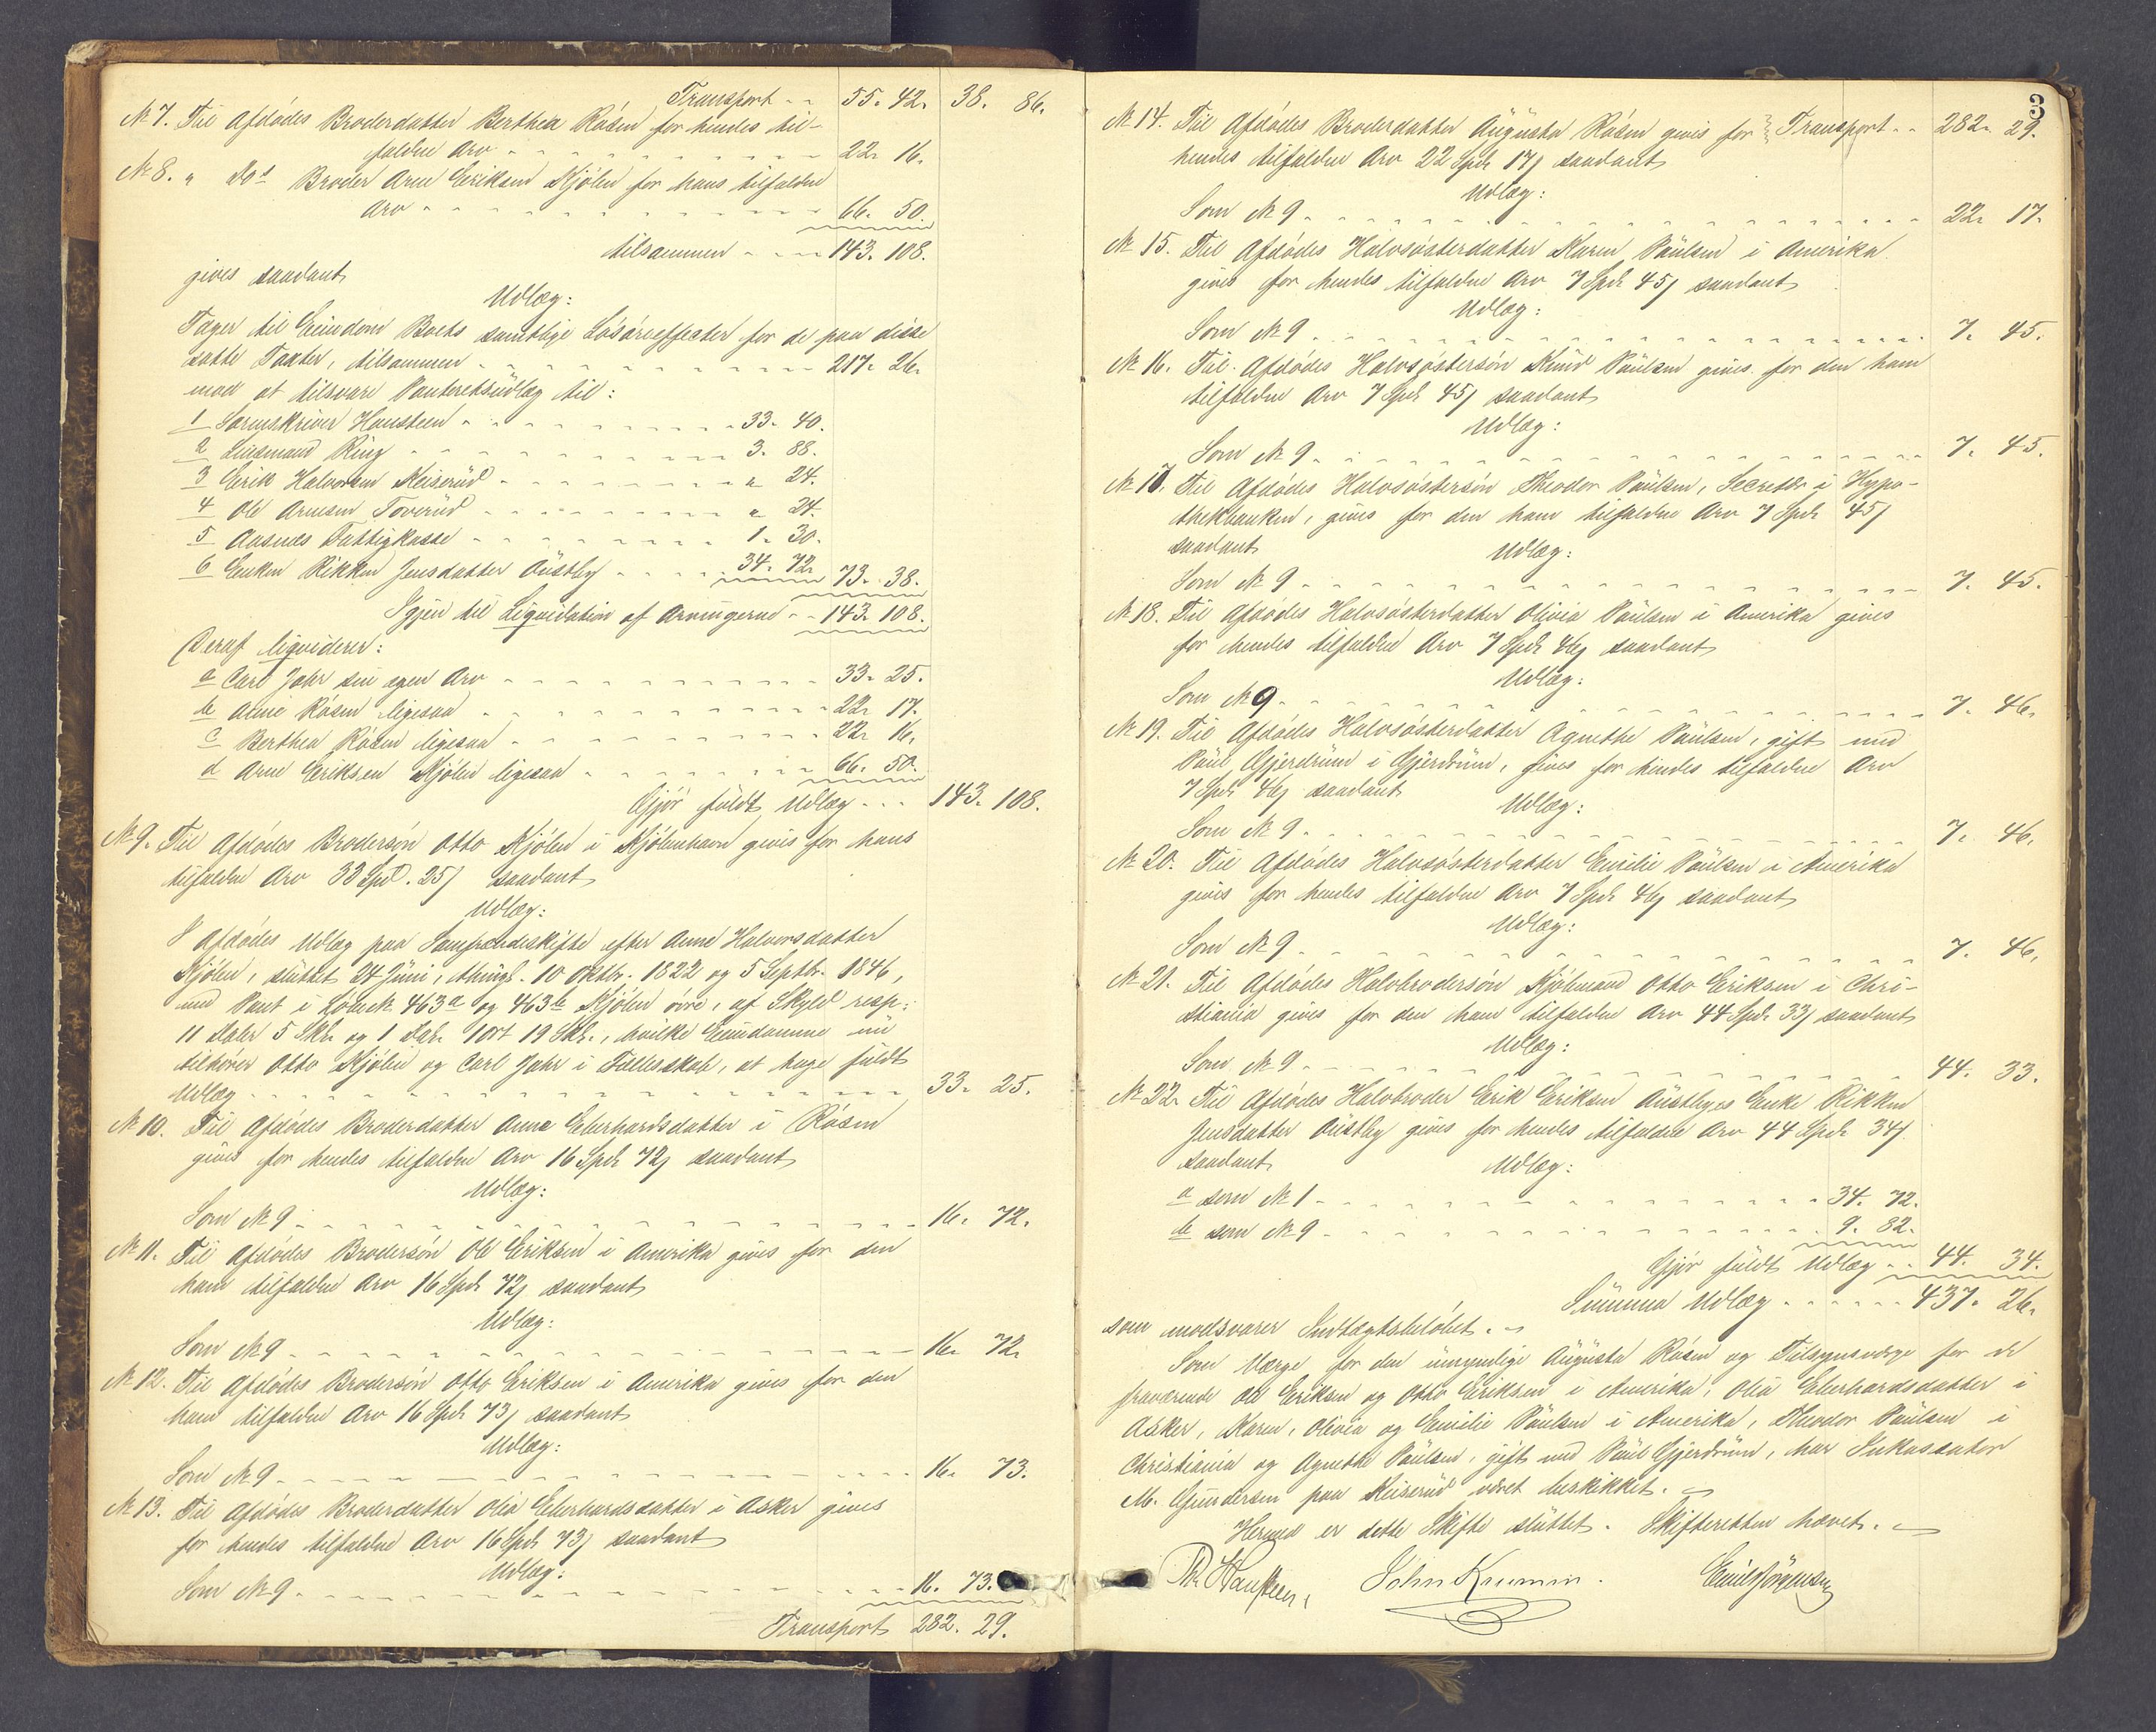 Transport - - 55. 42. 38. 86.
№ 7. Til Afdödes Broderdatter Berthea Råsen for hendes til-
faldne Arv - - - 22. 16.
№ 8. " Dos Broder Arne Eriksen Kjölen for hans tilfaldne
Arv - - - 66. 50.
tilsammen - - - 143. 108.
gives saadant
Udlæg:
Tager til Eiendom Boets samtlige Lösöreeffecter for de paa disse
satte Taxter, tilsammen - - - 217. 26.
mod at tilsvare Panteretsudlæg til:
1 Sorenskriver Hansteen - - - 33. 40.
2 Lensmand Ring - - - 3. 88.
3 Erik Halvorsen Keiserud - - - " 24.
4 Ole Arnesen Toverud - - - " 24.
5 Aasnes Fattigkasse - - - 1. 30.
6 Enken Rikken Jensdatter Oustby - - - 34. 72. 73. 38.
Igjen til Liqvidation af Arvingerne - - 143. 108.
Deraf liqviderer:
a Carl Johr sin egen Arv - - - 33. 25.
b Anne Råsen ligesaa - - - 22. 17.
c Berthea Råsen ligesaa - - - 22. 16.
d Arne Eriksen Kjölen ligesaa - - - 66. 50.
Gjör fuldt Udlæg - - - 143. 108.
№ 9. Til Afdödes Brodersön Otto Kjölen i Kjöbenhavn gives for hans
tilfaldne Arv 33 Spd. 25 s saadant
Udlæg:
I Afdödes Udlæg paa Samfrændeskifte efter Anne Halvorsdatter
Kjölen, sluttet 24 Juni, thingl. 10 Oktbr. 1822 og 5 Septbr. 1846,
med Pant i Löbe№ 463a og 463b Kjölen övre, af Skyld resp:
11 Daler 5 Skl. og 1 Dalr. 1 Ort 19 Skl., hvilke Eiendomme nu
tilhörer Otto Kjölen og Carl Johr i Fællesskab, at hæge fuldt
Udlæg - - - 33. 25.
№ 10. Til Afdödes Broderdatter Anne Eberhardsdatter i Råsen
gives for hendes tilfaldne Arv 16 Spd. 72 s saadant
Udlæg:
Som № 9 - - - 16. 72.
№ 11. Til Afdödes Brodersön Ole Eriksen i Amerika gives for den
ham tilfaldne Arv 16 Spd. 72 s saadant
Udlæg:
Som № 9 - - - 16. 72.
№ 12. Til Afdödes Brodersön Otto Eriksen i Amerika gives for den
ham tilfaldne Arv 16 Spd. 73 s saadant
Udlæg:
Som № 9 - - - 16. 73.
№ 13. Til Afdödes Broderdatter Olia Eberhardsdatter i Asker gives
for hendes tilfaldne Arv 16 Spd. 73 s saadant
Udlæg:
Som № 9 - - - 16. 73.
Transport 282. 29.
3
№ 14. Til Afdödes Broderdatter Augusta Råsen gives for Transport - - 282. 29.
hendes tilfaldne Arv 22 Spd. 17 s saadant
Udlæg:
Som № 9 - - - 22. 17.
№ 15. Til Afdödes Halvsösterdatter Karen Paulsen i Amerika
gives for hendes tilfaldne Arv 7 Spd. 45 s saadant
Udlæg:
Som № 9 - - - 7. 45.
№ 16. Til Afdödes Halvsöstersön Knud Paulsen gives for den ham
tilfaldne Arv 7 Spd. 45 s saadant
Udlæg:
Som № 9 - - - 7. 45.
№ 17. Til Afdödes Halvsöstersön Theodor Paulsen, Secretær i Hypo-
thekbanken, gives for den ham tilfaldne Arv 7 Spd. 45 s
saadant
Udlæg:
Som № 9 - - - 7. 45.
№ 18. Til Afdödes Halvsösterdatter Olivia Paulsen i Amerika gives
for hendes tilfaldne Arv 7 Spd. 46 s saadant
Udlæg:
Som № 9 - - - 7. 46.
№ 19. Til Afdödes Halvsösterdatter Agnethe Paulsen, gift med
Paul Gjerdrum i Gjerdrum, gives for hendes tilfaldne Arv
7 Spd. 46 s saadant
Udlæg:
Som № 9 - - - 7. 46.
№ 20. Til Afdödes Halvsösterdatter Emilie Paulsen i Amerika
gives for hendes tilfaldne Arv 7 Spd. 46 s saadant
Udlæg:
Som № 9 - - - 7. 46.
№ 21. Til Afdödes Halvbrodersön Kjöbmand Otto Eriksen i Chri-
stiania gives for den ham tilfaldne Arv 44 Spd. 33 s saadant
Udlæg:
Som № 9 - - - 44. 33.
№ 22. Til Afdödes Halvbroder Erik Eriksen Oustbyes Enke Rikken
Jensdatter Oustby gives for hendes tilfaldne Arv 44 Spd. 34 s
saadant
Udlæg:
a som № 1 - - - 34. 72.
b som № 9 - - - 9. 82.
Gjör fuldt Udlæg - - 44. 34.
Summa Udlæg - - - 437. 26.
som modsvarer Indtægtsbelöbet.
Som Værge for den umyndige Augusta Råsen og Tilsynsværge for de
fraværende Ole Eriksen og Otto Eriksen i Amerika, Olia Eberhardsdatter i
Asker, Karen, Olivia og Emilie Paulsen i Amerika, Theodor Paulsen i
Christiania og Agnethe Paulsen, gift med Paul Gjerdrum, har Inkassator
M. Gundersen paa Keiserud været beskikket.
Hermed er dette Skifte sluttet. Skifteretten hævet.
Hansteen. John Krumm. Emil Jörgensen